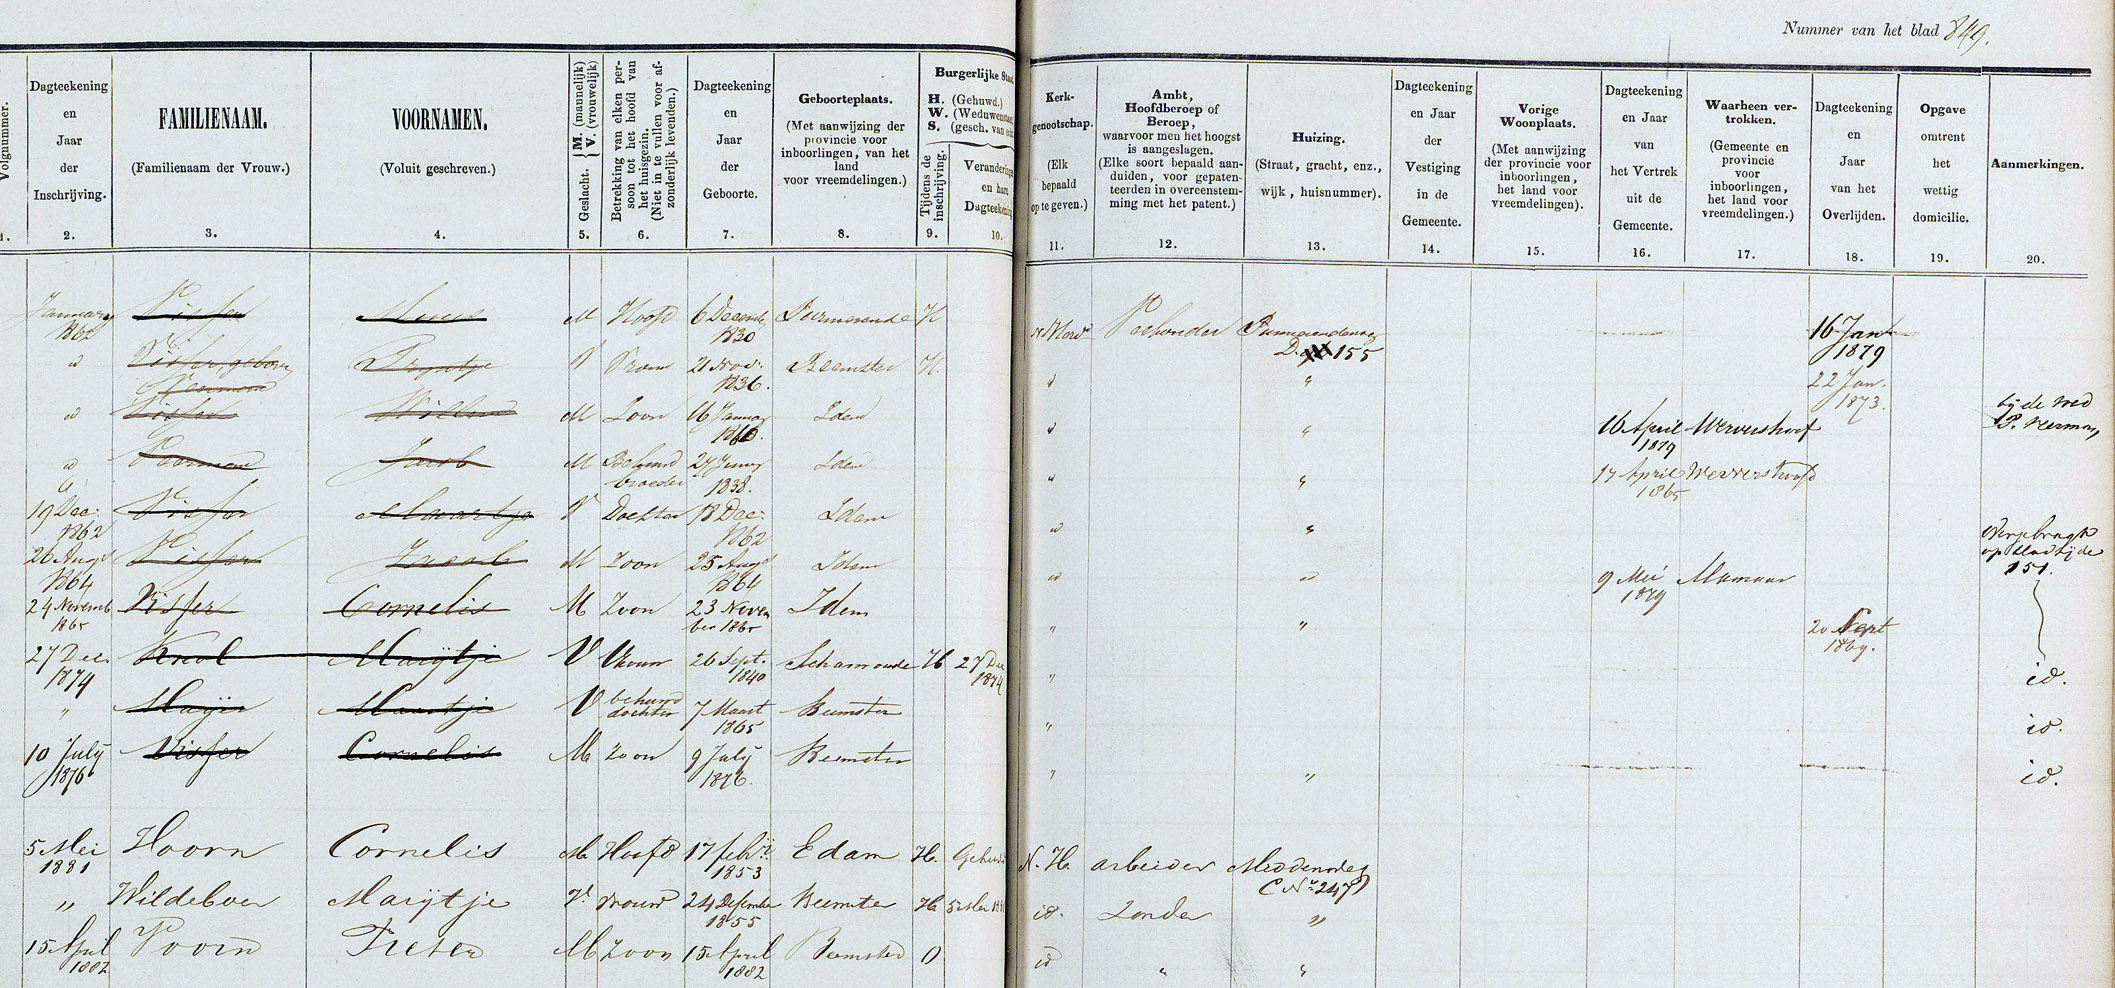 Nummer van het blad 849.
Volgnummer.
1.
Dagteekening
en
Jaar
der
Inschrijving.
2.
FAMILIENAAM.
(Familienaam der Vrouw.)
3.
VOORNAMEN.
(Voluit geschreven.)
4.
Geslacht. { M. (mannelijk) V. (vrouwelijk)
5.
Betrekking van elken per-
soon tot het hoofd van
het huisgezin.
(Niet in te vullen voor af-
zonderlijk levenden.)
6.
Dagteekening
en
Jaar
der
Geboorte.
7.
Geboorteplaats.
(Met aanwijzing der
provincie voor
inboorlingen, van het
land
voor vreemdelingen.)
8.
Burgerlijke
H. (Gehuwd.)
W.
S. (gesch. van
Tijdens de
inschrijving.
9.
en
10.
Kerk-
genootschap.
(Elk
bepaald
op te geven.)
11.
Ambt,
Hoofdberoep of
Beroep,
waarvoor men het hoogst
is aangeslagen.
(Elke soort bepaald aan-
duiden, voor gepaten-
teerden in overeenstem-
ming met het patent.)
12.
Huizing.
(Straat, gracht, enz.,
wijk, huisnummer).
13.
Dagteekening
en Jaar
der
Vestiging
in de
Gemeente.
14.
Vorige
Woonplaats.
(Met aanwijzing
der provincie voor
inboorlingen,
het land voor
vreemdelingen).
15.
Dagteekening
en Jaar
van
het Vertrek
uit de
Gemeente.
16.
Waarheen ver-
trokken.
(Gemeente en
provincie
voor
inboorlingen,
het land voor
vreemdelingen.)
17.
Dagteekening
en
Jaar
van het
Overlijden.
18.
Opgave
omtrent
het
wettig
domicilie.
19.
Aanmerkingen.
20.
January 1862 Visser M Hoofd 6 Decemb 1830 Purmerende H
D. 155 16 Jan 1879
Visser, geboren Trijntje V Vrouw 21 Nov. 1836. Beemster H.
22 Jan. 1873.
Visser Willem M Zoon 16 Januay 1860. Idem
16 April 1879 Wervershoof
bij de
Jacob M Behuwd broeder 1838. Idem
17 April 1865 Wervershoof
19 Dec: 1862 Visser Maartje V Dochter 18 Dec: 1862 Idem
26 Augt 1864 Visser Jacob M Zoon 25 Augt 1864 Idem
9 Mei 1879
op bladzijde 151.
24 Novemb 1865 Visser Cornelis M Zoon 23 Novem ber 1865 Idem
20 Sept 1869.
27 Dec. 1874 Knol Marijtje V Vrouw 26 Sept. 1840 H 27 Dec 1874
id.
" Maartje V behuwd dochter 7 Maart 1865 Beemster
id.
10 July 1876 Visser Cornelis M Zoon 9 July 1876. Beemster
id.
5 Mei 1881 Hoorn Cornelis M Hoofd 17 febr: 1853 Edam H.
N. H. arbeider Middenweg C No. 247
" Wildeboer Marijtje V. vrouw 24 December 1855 Beemster H. 5 Mei
id. Zonder "
15 April 1882 Hoorn Pieter M Zoon 15 April 1882 Beemster O
id " "